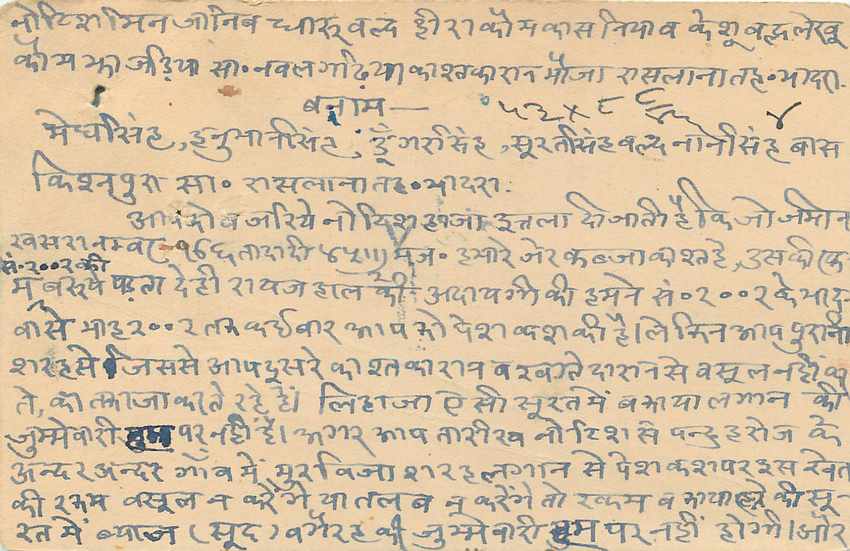 नोटिश मिन जानिब चारू वल्द हीरा कौम कासनिया व केशू वल्द लेखू
कौम झाझड़िया सा० नवलगढ़िया काश्तकारान मौजा रासलाना तह० भादरा.
बनाम —
मेघसिंह, हनुमानसिंह, डूँगरसिंह, सूरतसिंह वल्द नानीसिंह बास
किशनपुरा सा० रासलाना तह० भादरा.
आपको बजरिये नोटिश हाजा इत्तला दी जाती है कि जो जमीन
खसरा नम्बर तादादी हमारे जेर कब्जा काश्त है, उसकी रक-
सं. २००२ की
म बरूये पड़ता देही रायज हाल की अदायगी की हमने सं० २००२ के भाद-
वा से माह २००२ तक कई बार आपको पेशकश की है। लेकिन आप पुरानी
शरह से जिससे आप दूसरे काश्तकारान व खातेदारान से वसूल नहीं कर
ते, का तकाजा करते रहे हैं। लिहाजा ऐसी सूरत में बकाया लगान की
जुम्मेवारी हम पर नहीं है। अगर आप तारीख नोटिश से पन्द्रह रोज के
अन्दर अन्दर गाँव में मुरविजा शरह लगान से पेशकश पर इस खेत
की रकम वसूल न करेंगे या तलब न करेंगे तो रकम बकाया रहने की सू-
रत में ब्याज (सूद) वगैरह की जुम्मेवारी हम पर नहीं होगी। और